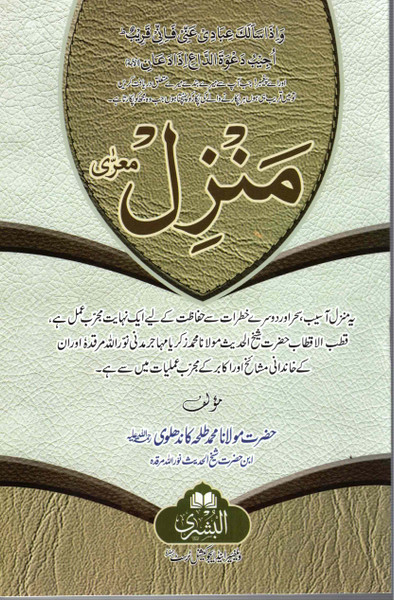 وَاِذَا سَاَلَكَ عِبَادِیْ عَنِّیْ فَاِنِّیْ قَرِیْبٌ
اُجِیْبُ دَعْوَةَ الدَّاعِ اِذَا دَعَانِ
مَنْزِلْ
معرّٰی
یہ منزل آسیب، سحر اور دوسرے خطرات سے حفاظت کے لیے ایک نہایت مجرّب عمل ہے،
قطب الاقطاب حضرت شیخ الحدیث مولانا محمد زکریا مہاجر مدنی نور اللہ مرقدہٗ اور ان
کے خاندانی مشائخ اور اکابر کے مجرّب عملیات میں سے ہے۔
مؤلف
حضرت مولانا محمد طلحہ کاندھلوی رحمۃ اللہ علیہ
ابن حضرت شیخ الحدیث نور اللہ مرقدہ
البشریٰ